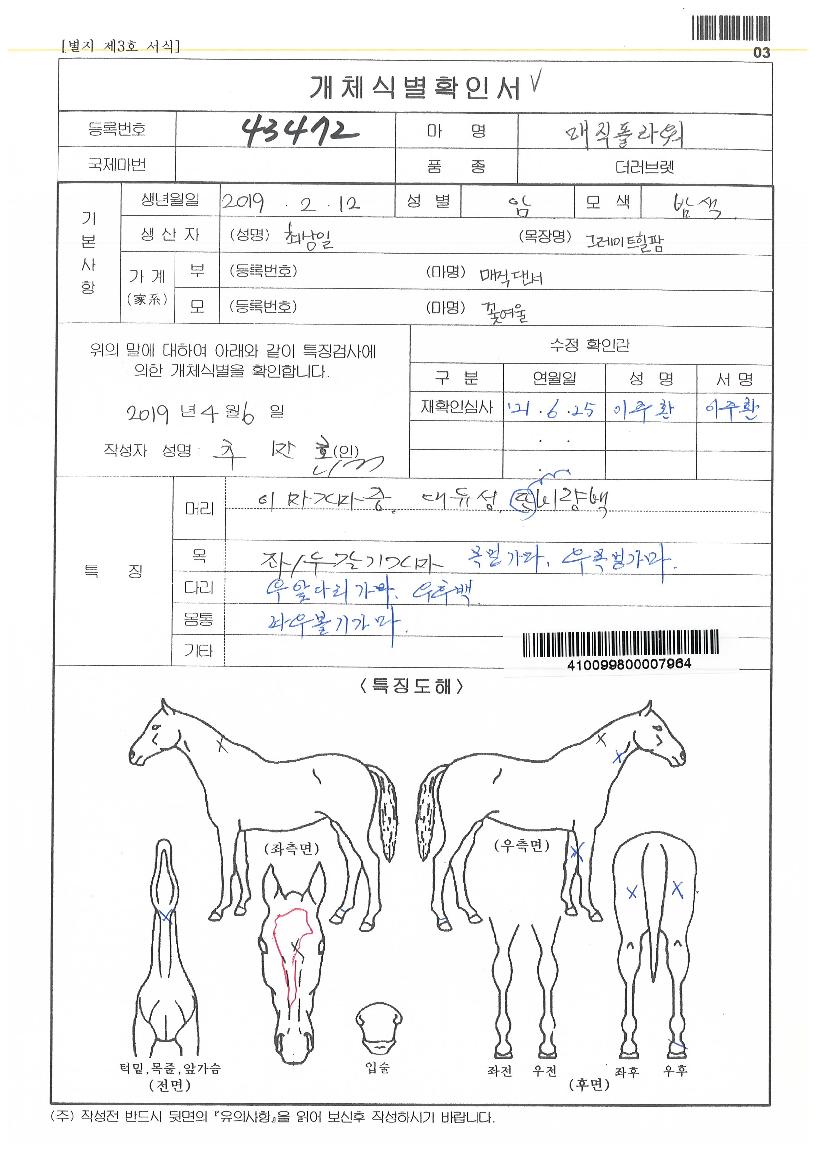 [별지 제3호 서식]
03
개체식별확인서 √
등록번호 43472 마 명 매직플라워
국제마번 품 종 더러브렛
기본사항
생년월일 2019 . 2 . 12 성 별 암 모 색 밤색
생 산 자 (성명) 최남일 (목장명) 그레이트힐팜
가 계 (家系) 부 (등록번호) (마명) 매직댄서
모 (등록번호) (마명) 꽃여울
위의 말에 대하여 아래와 같이 특징검사에
의한 개체식별을 확인합니다.
2019 년 4 월 6 일
작성자 성명 : (인)
수정 확인란
구 분 연월일 성 명 서 명
재확인심사 '21 . 6 . 25 이주환 이주환
. .
. .
특 징
머리 이마가마중, 대유성, 비량백
목 좌/우갈기가마 목열가마, 우목벌가마.
다리 우앞다리가마, 우후백
몽통 좌우볼기가마
기타
410099800007964
<특징도해>
(좌측면) (우측면)
턱밑,목줄,앞가슴
(전면)
입술
좌전 우전 좌후 우후
(후면)
(주) 작성전 반드시 뒷면의 『유의사항』을 읽어 보신후 작성하시기 바랍니다.